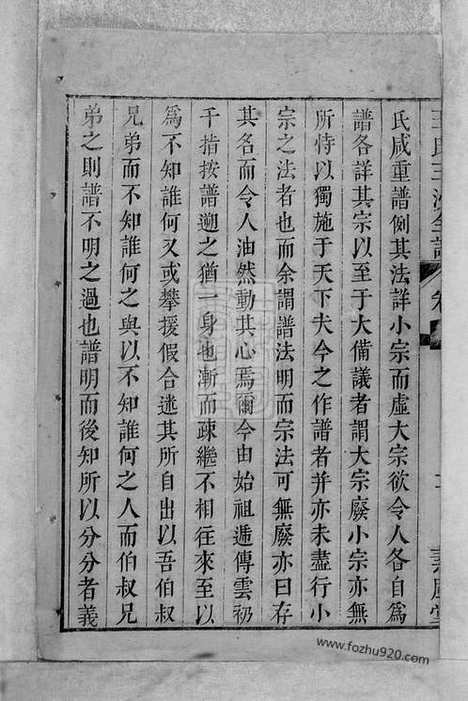 氏咸重譜例其法詳小宗而虛大宗欲令人各自為
譜各詳其宗以至于大備議者謂大宗廢小宗亦無
所恃以獨施于天下夫今之作譜者并亦未盡行小
宗之法者也而余謂譜法明而宗法可無廢亦曰存
其名而令人油然動其心焉爾今由始祖遞傳雲礽
千指按譜遡之猶一身也漸而疎繼不相往來至以
為不知誰何又或攀援假合迷其所自出以吾伯叔
兄弟而不知誰何之與以不知誰何之人而伯叔兄
弟之則譜不明之過也譜明而後知所以分分者義
www.fozhu920.com